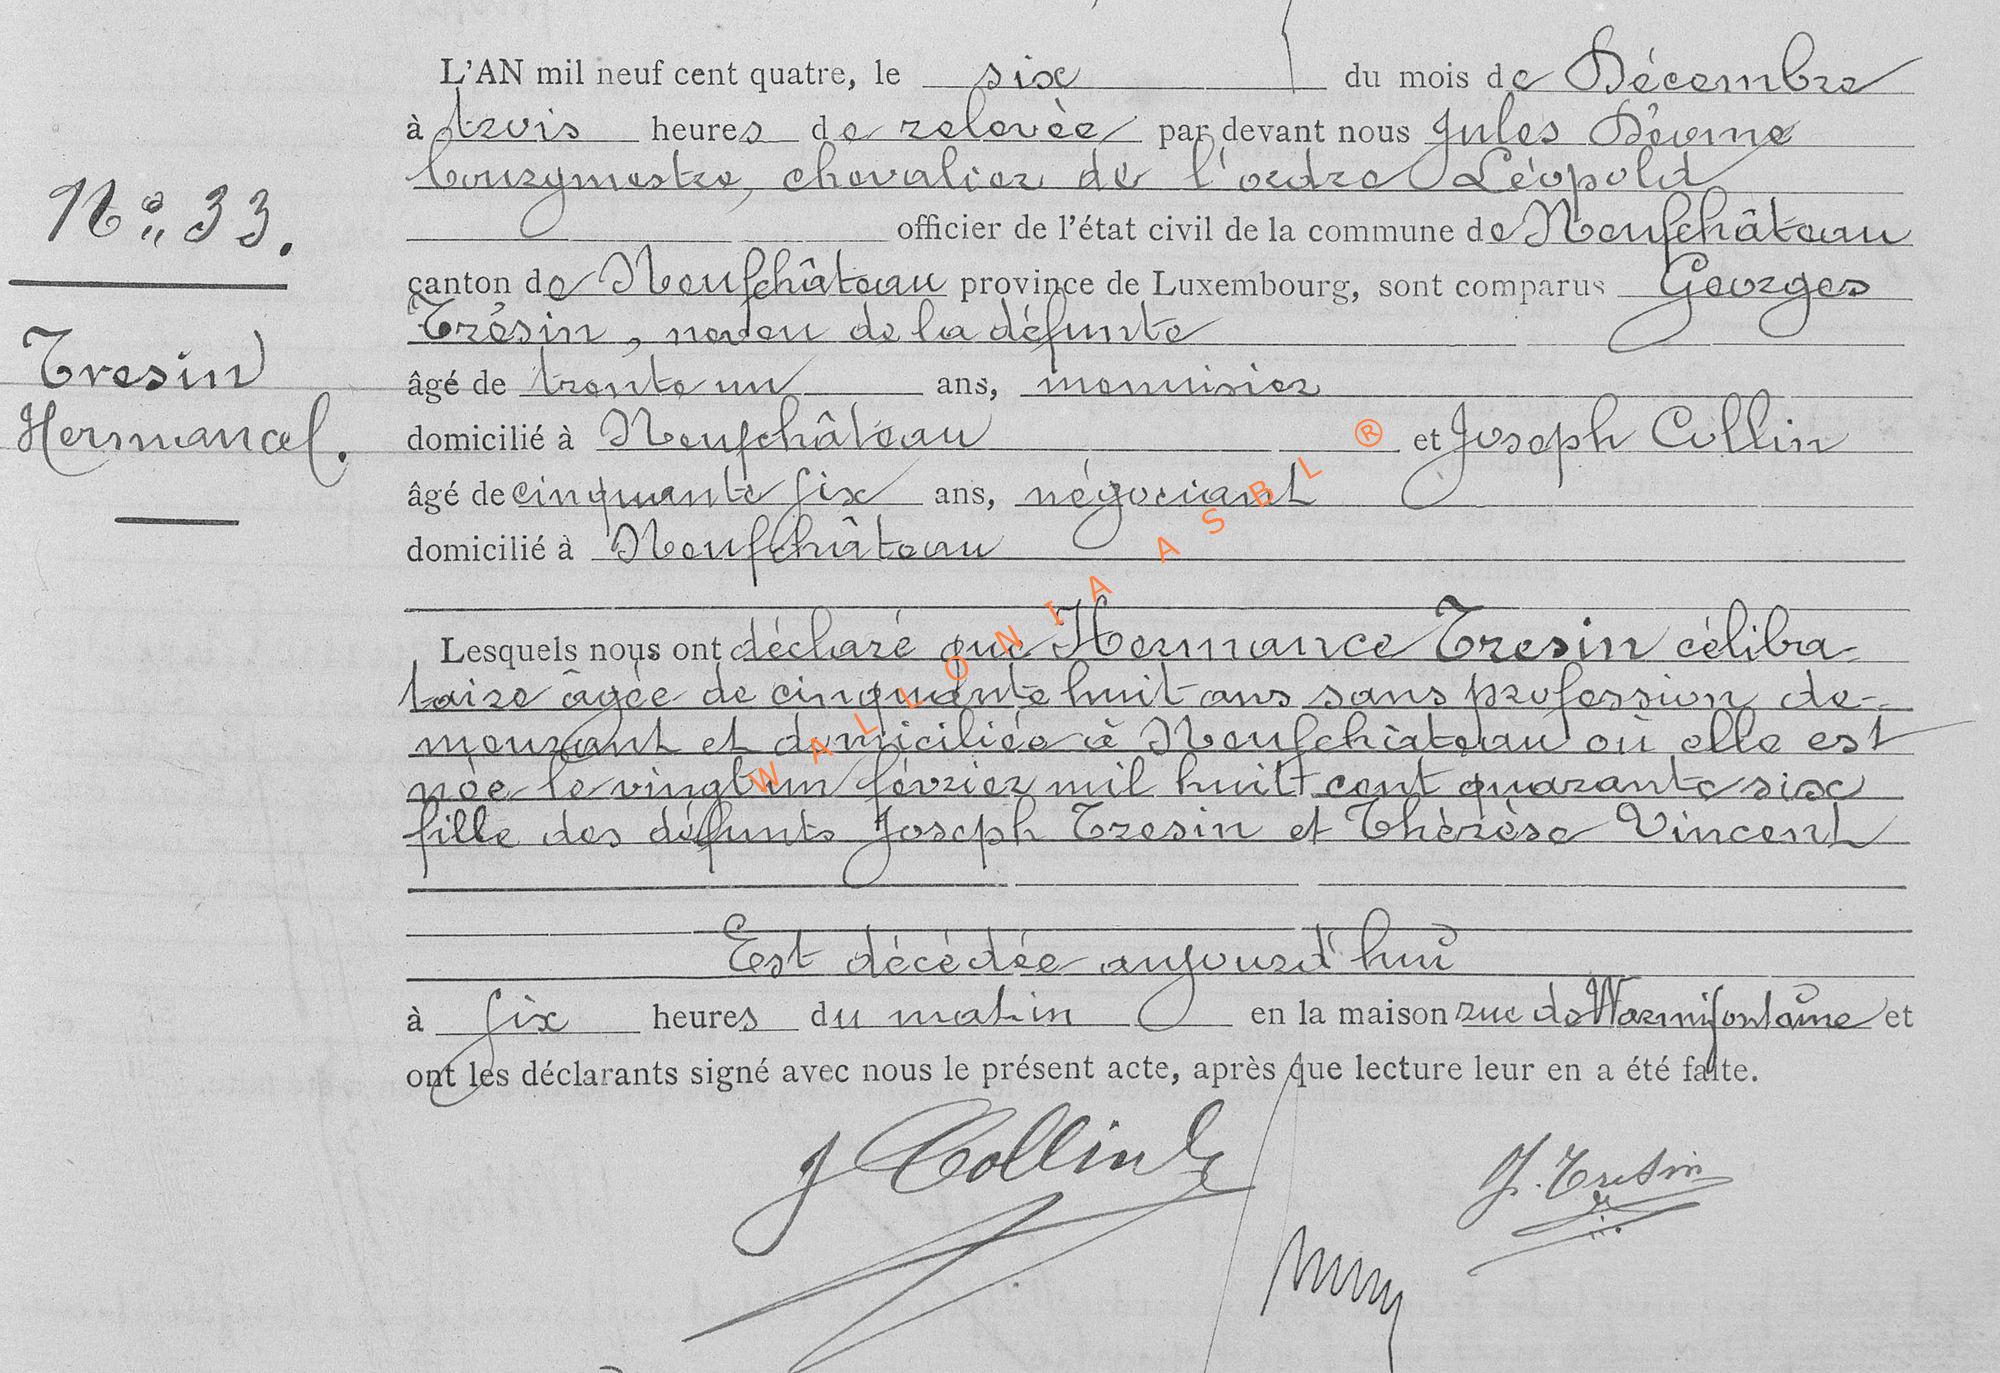 L'AN mil neuf cent quatre, le six du mois de Décembre
à trois heures de relevée par devant nous Jules
bourgmestre, chevalier de l'ordre Léopold
officier de l'état civil de la commune de Neufchâteau
N° 33.
canton de Neufchâteau province de Luxembourg, sont comparus Georges
Trésin, neveu de la défunte
Tresin
âgé de trente un ans, menuisier
Hermance.
domicilié à Neufchâteau et Joseph Collin
âgé de cinquante six ans, négociant
domicilié à Neufchâteau
Lesquels nous ont déclaré que Hermance Tresin céliba-
taire âgée de cinquante huit ans sans profession de-
meurant et domiciliée à Neufchâteau où elle est
née le vingt un février mil huit cent quarante six
fille des défunts Joseph Tresin et Thérèse Vincent
Est décédée aujourd'hui
à six heures du matin en la maison rue de Warmifontaine et
ont les déclarants signé avec nous le présent acte, après que lecture leur en a été faite.
J Collin G. Tresin
WALLONIA ASBL ®